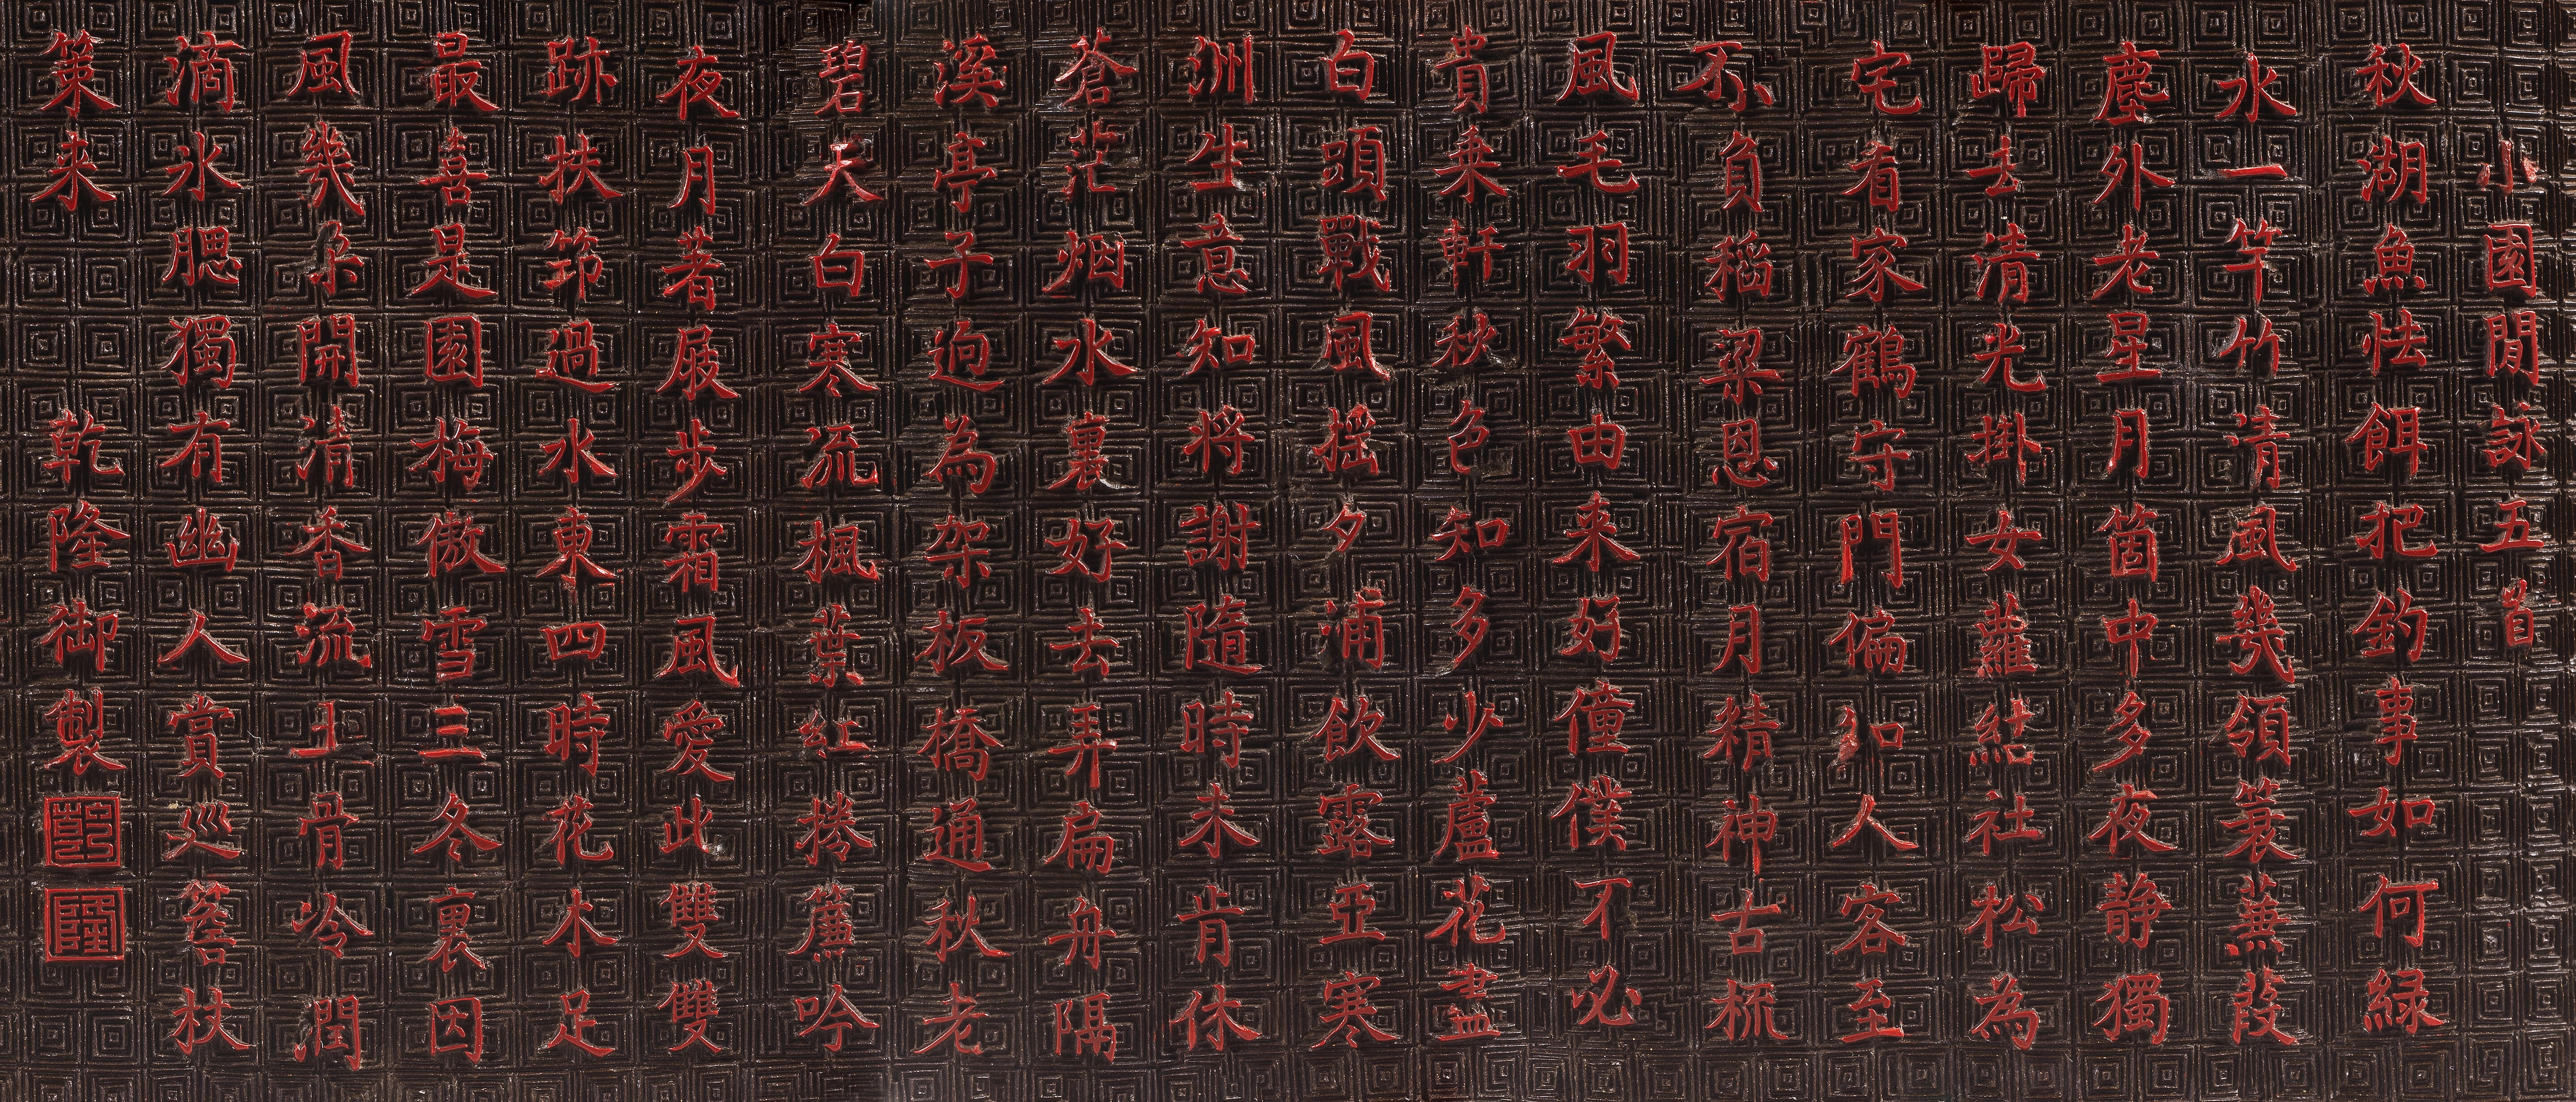 小園閒詠五首
秋湖魚怯餌把釣事如何緑
水一竿竹清風幾領蓑蕪葭
塵外老星月箇中多夜静獨
歸去清光掛女蘿結社松為
宅看家鶴守門偏知人客至
不負稻粱恩宿月精神古梳
風毛羽繁由来好僮僕不必
貴乗軒秋色知多少蘆花盡
白頭戰風揺夕浦飲露亞寒
洲生意知将謝隨時未肯休
蒼茫烟水裏好去弄扁舟隔
溪亭子逈為架板橋通秋老
碧天白寒流楓葉紅捲簾吟
夜月著屐步霜風愛此雙雙
跡扶筇過水東四時花木足
最喜是園梅傲雪三冬裏因
風幾朶開清香流玉骨冷潤
滴氷腮獨有幽人賞巡簷杖
策来 乾隆御製
乾
隆